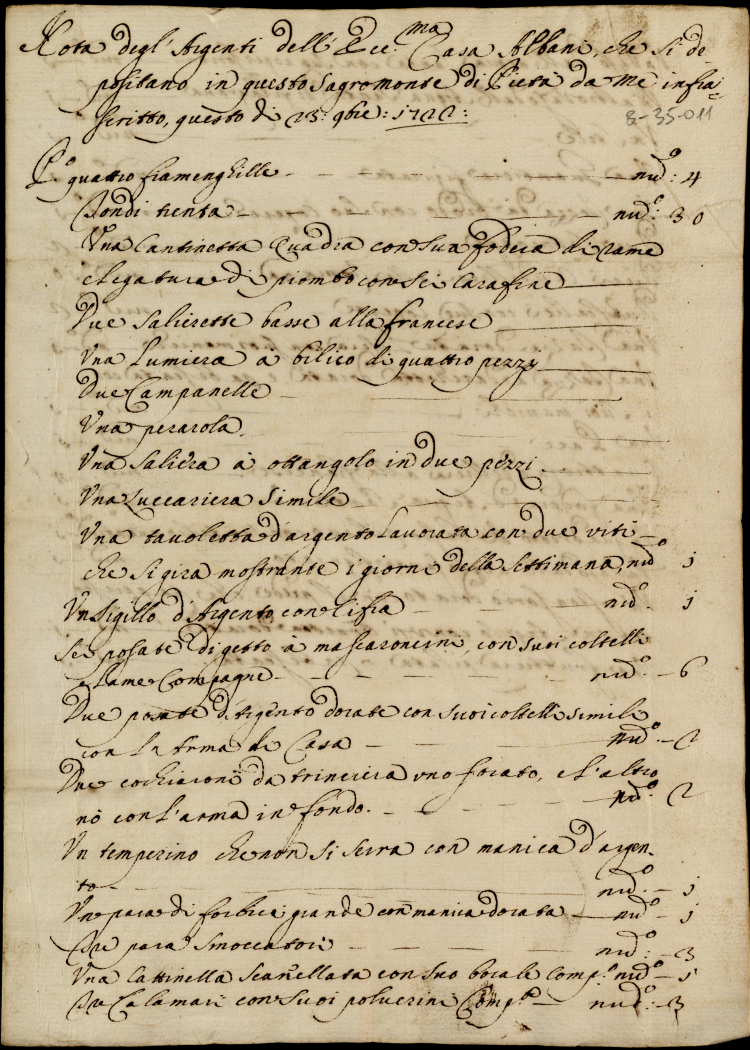 Nota degl'Argenti dell'Ecc.ma Casa Albani, che si de-
positano in questo Sagromonte di Pietà da me infra-
scritto, questo dì 23: 9bre: 1722:
8-35-011
P.o quattro fiamenghille - nu.o: 4
Tondi trenta - nu.o: 30
Una Cantinetta quadra con sua fodera di rame
e legatura di piombo con sei Carafine
Due Salierette basse alla francese
Una Lumiera a bilico di quattro pezzi
Due Campanelle
Una perarola
Una Saliera à ottangolo in due pezzi.
Una Zuccariera simile
Una tavoletta d'argento lavorata con due viti
che si gira mostrante i giorni della Settimana, nu.o 1
Un Sigillo d'Argento con Cifra - nu.o. 1
Sei posate di getto à mascaroncini, con suoi coltelli
e lame Compagne - nu.o - 6
Due posate d'Argento dorate con suoi coltelli simili
con l'Arma di Casa - nu.o - 2
Due cochiaroni da trinciera uno forato, e l'altro
nò con l'arma in fondo. - nu.o 2
Un temperino che non si serra con manica d'argen-
to - nu.o - 1
Uno para di forbici grande con manica dorata - nu.o - 1
Tre para smoccatori - nu.o: - 3
Una Cattinella scanellata con suo bocale Comp.o nu.o - 1
Tre Calamari con suoi polverini Comp.o - nu.o: - 3